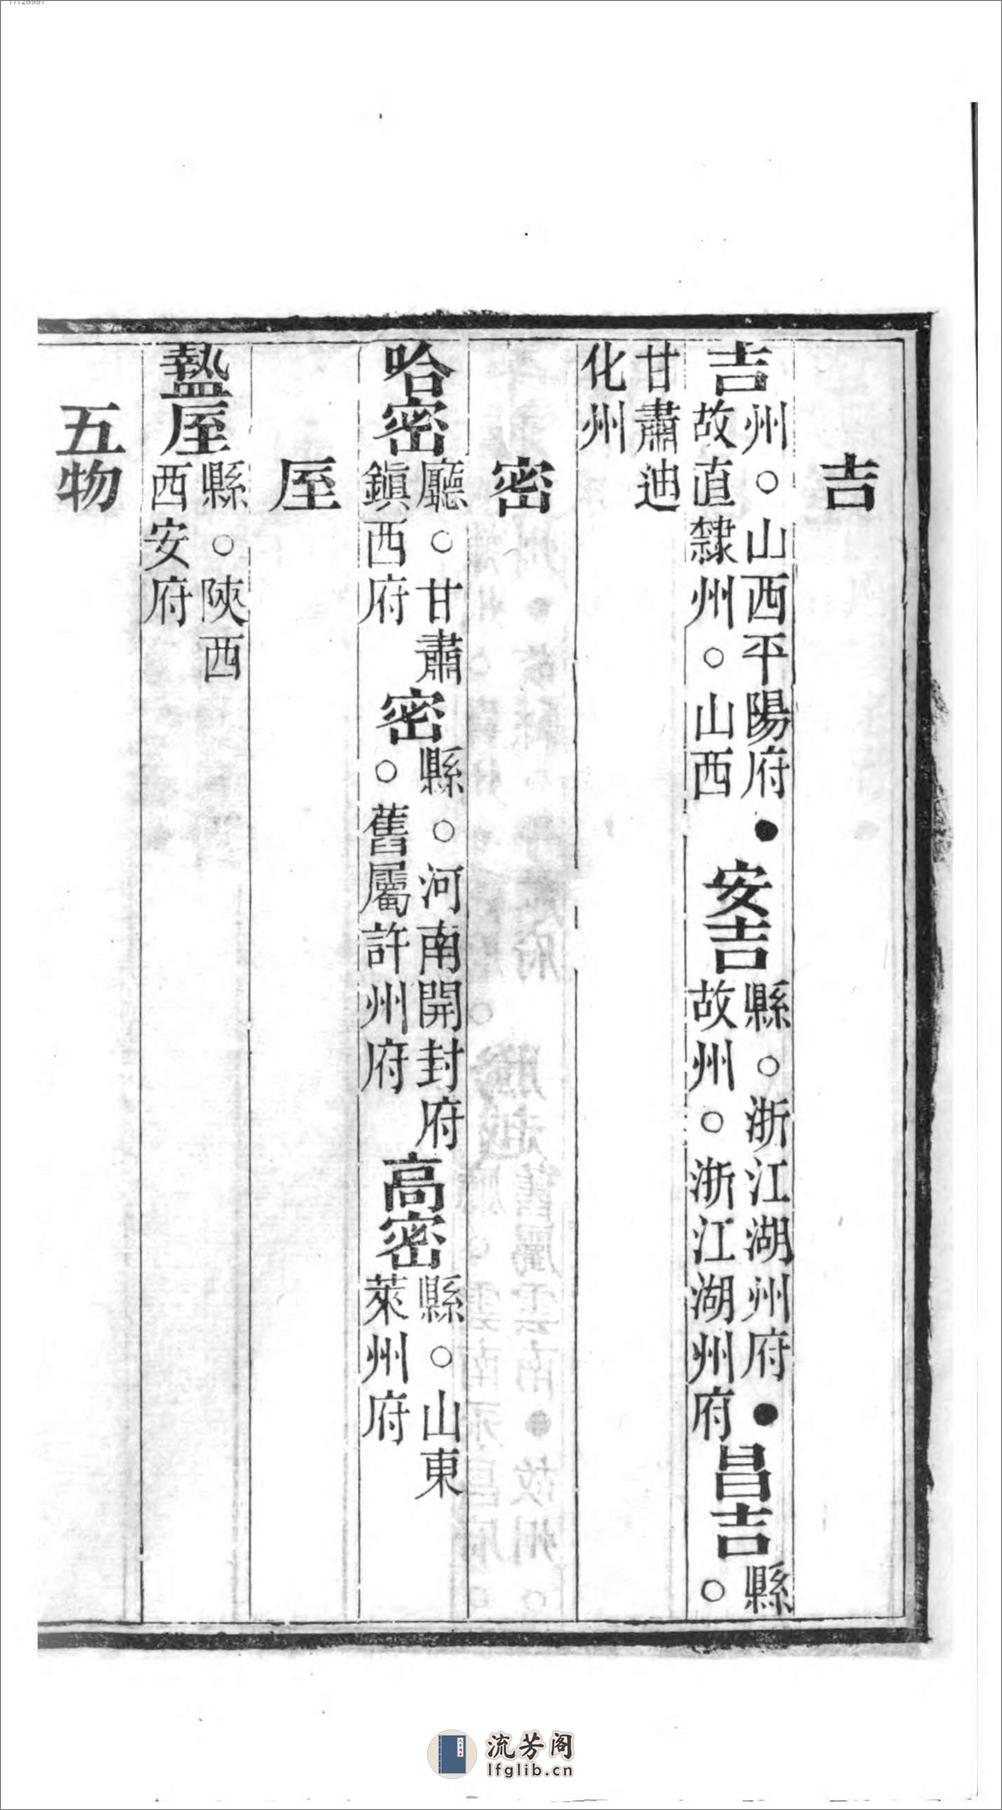 吉
吉州○山西平陽府●故直隸州○山西 安吉縣○浙江湖州府●故州○浙江湖州府 昌吉縣○
甘肅迪化州
密
哈密廳○甘肅鎭西府 密縣○河南開封府○舊屬許州府 高密縣○山東萊州府
厔
盩厔縣○陝西西安府
五物
流芳阁
lfglib.cn